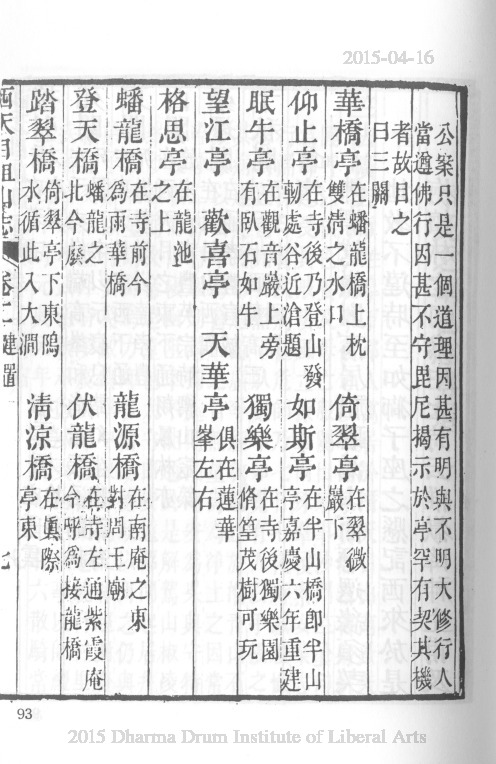 2015-04-16
公案只是一個道理因甚有明與不明大修行人
當遵佛行因甚不守毘尼揭示於亭罕有契其機
者故目之
曰三關
華橋亭 在蟠龍橋上枕
雙清之水口 倚翠亭 在翠微
巖下
仰止亭 在寺後乃登山發
軔處谷近滄題 如斯亭 在半山橋卽半山
亭嘉慶六年重建
眠牛亭 在觀音巖上旁
有臥石如牛 獨樂亭 在寺後獨樂園
脩篁茂樹可玩
望江亭 歡喜亭 天華亭 俱在蓮華
峯左右
格思亭 在龍池
之上
蟠龍橋 在寺前今
爲雨華橋 龍源橋 在南庵之東
對周王廟
登天橋 蟠龍之
北今廢 伏龍橋 在寺左通紫霞庵
今呼爲接龍橋
踏翠橋 倚翠亭下東塢
水循此入大澗 清涼橋 在眞際
亭東
西天目祖山志 卷二 建置 七
93
2015 Dharma Drum Institute of Liberal Arts